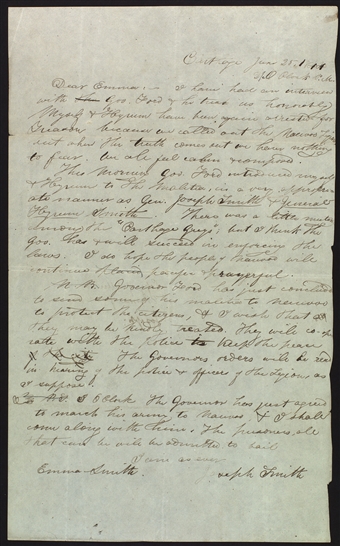 Carthage June 25. 1844
Dear Emma:— I have had an interview
with Gov. Ford & he treats us honorably
Myself & Hyrum have been again arrested for
Treason because we called out the Nauvoo
but when the truth comes out we have nothing
to fear. We all feel calm & composed.
This Morning Gov. Ford introduced myself
& Hyrum to the Malitia, in a very appropri
ate manner as Gen. Joseph Smith & General
Hyrum Smith. There was a little mutiny
among the "Carthage Greys", but I think the
Gov. has & will succeed in enforcing the
laws. I do hope the people of Nauvoo will
continue prayerful.
N.B. Governor Ford has just concluded
to send some of his malitia to Nauvoo
to protect the citizens, & I wish that
they may be kindly treated. They will co-oper
ate with the police to keep the peace
The Governors orders will be read
in hearing of the police & officers of the Legion, as
I suppose.
3 oclock The Governor has just agreed
to march his army to Nauvoo & I shall
come along with him. The prisoners, all
that can be will be admitted to bail
I am as ever
Emma Smith. Joseph Smith